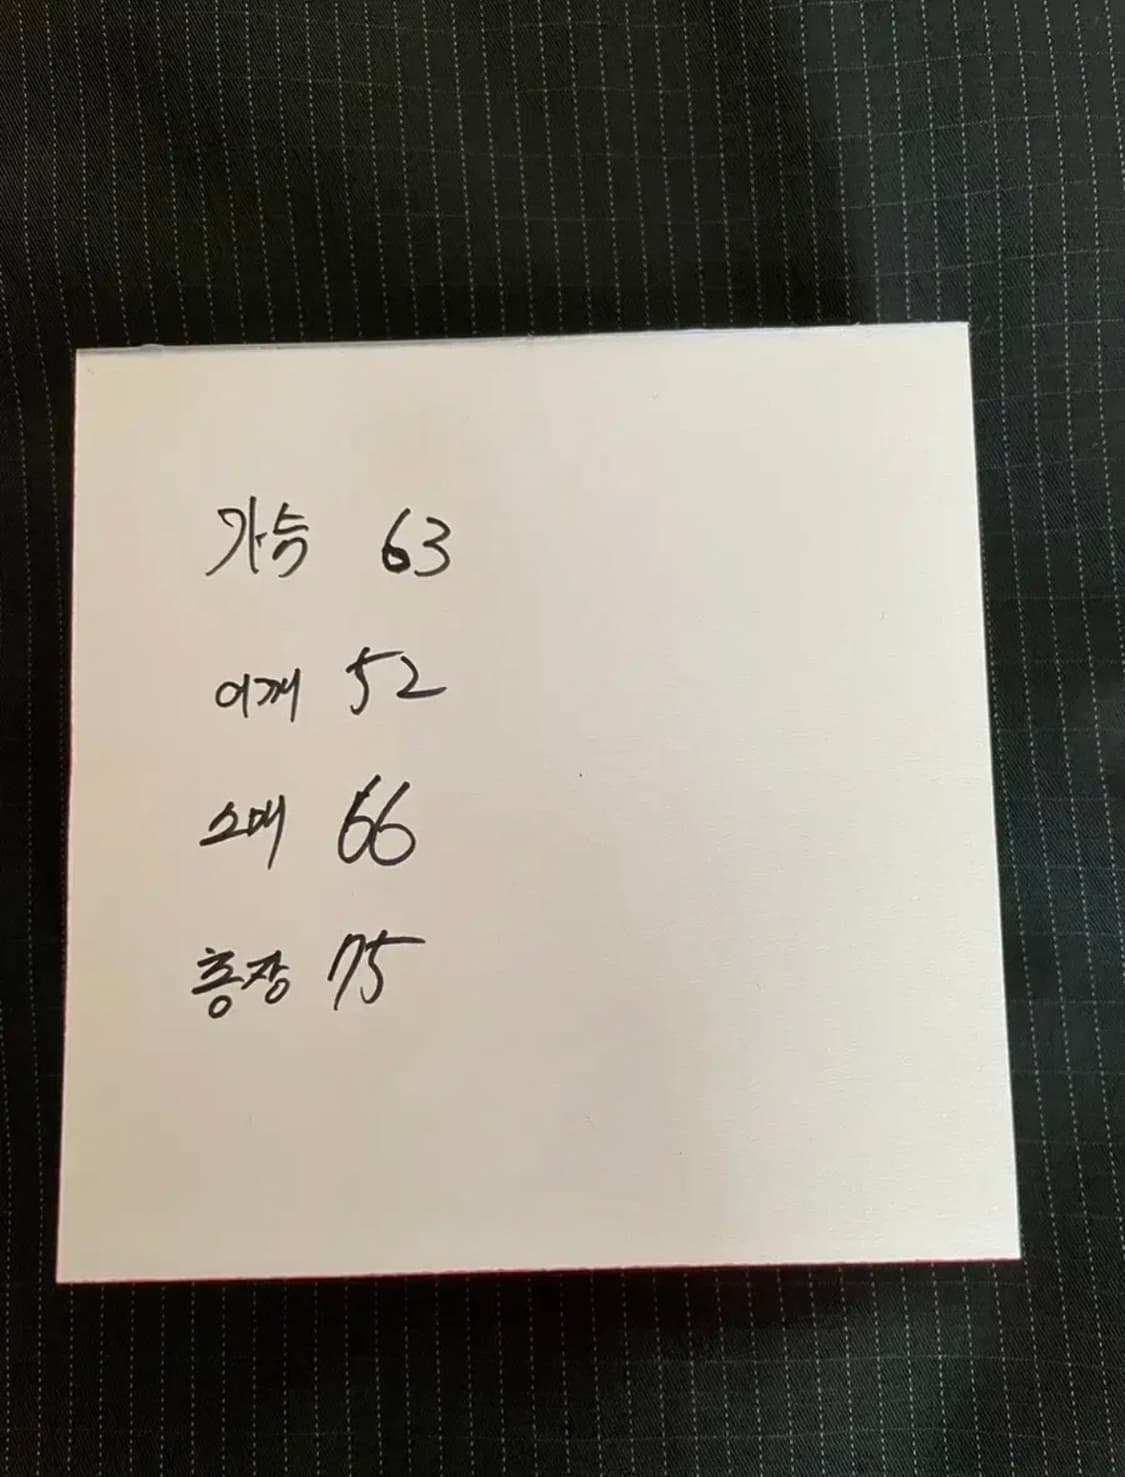 가슴 63
어깨 52
소매 66
총장 75